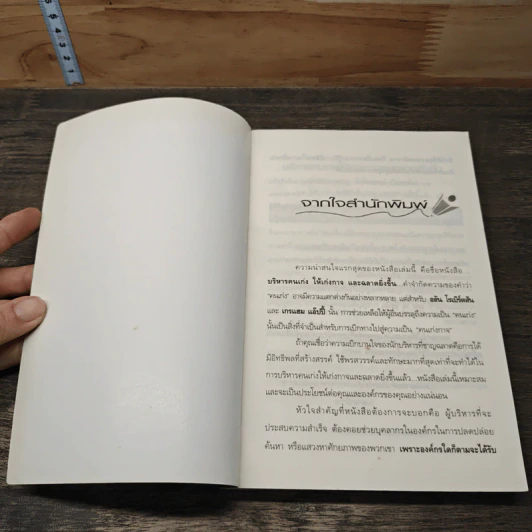 จากใจสำนักพิมพ์
ความน่าสนใจแรกสุดของหนังสือเล่มนี้ คือชื่อหนังสือ
บริหารคนเก่ง ให้เก่งกาจ และฉลาดยิ่งขึ้น...คำจำกัดความของคำว่า
"คนเก่ง" อาจมีความแตกต่างกันอย่างหลากหลาย แต่สำหรับ อลัน โรเบิร์ตสัน
และ เกรแฮม แอ๊บบี้ นั้น การช่วยเหลือให้ผู้อื่นบรรลุถึงความเป็น "คนเก่ง"
นั้นเป็นสิ่งที่จำเป็นสำหรับการเบิกทางไปสู่ความเป็น "คนเก่งกาจ"
ถ้าคุณเชื่อว่าความเบิกบานใจของนักบริหารที่ชาญฉลาดคือการได้
มีอิทธิพลที่สร้างสรรค์ ใช้พรสวรรค์และทักษะมากที่สุดเท่าที่จะทำได้ใน
การบริหารคนเก่งให้เก่งกาจและฉลาดยิ่งขึ้นแล้ว...หนังสือเล่มนี้เหมาะสม
และจะเป็นประโยชน์ต่อคุณและองค์กรของคุณอย่างแน่นอน
หัวใจสำคัญที่หนังสือต้องการจะบอกคือ ผู้บริหารที่จะ
ประสบความสำเร็จ ต้องคอยช่วยบุคลากรในองค์กรในการปลดปล่อย
ค้นหา หรือแสวงหาศักยภาพของพวกเขา เพราะองค์กรใดก็ตามจะได้รับ